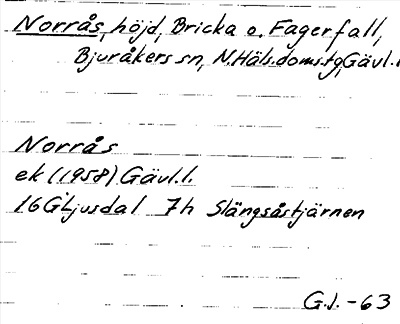 Norrås, höjd, Bricka o. Fagerfall,
Bjuråkers sn, N.Häls.doms.tg, Gävl.l.
Norrås
ek (1958) Gävl.l.
16G Ljusdal 7h Slängsåstjärnen
G.J. -63